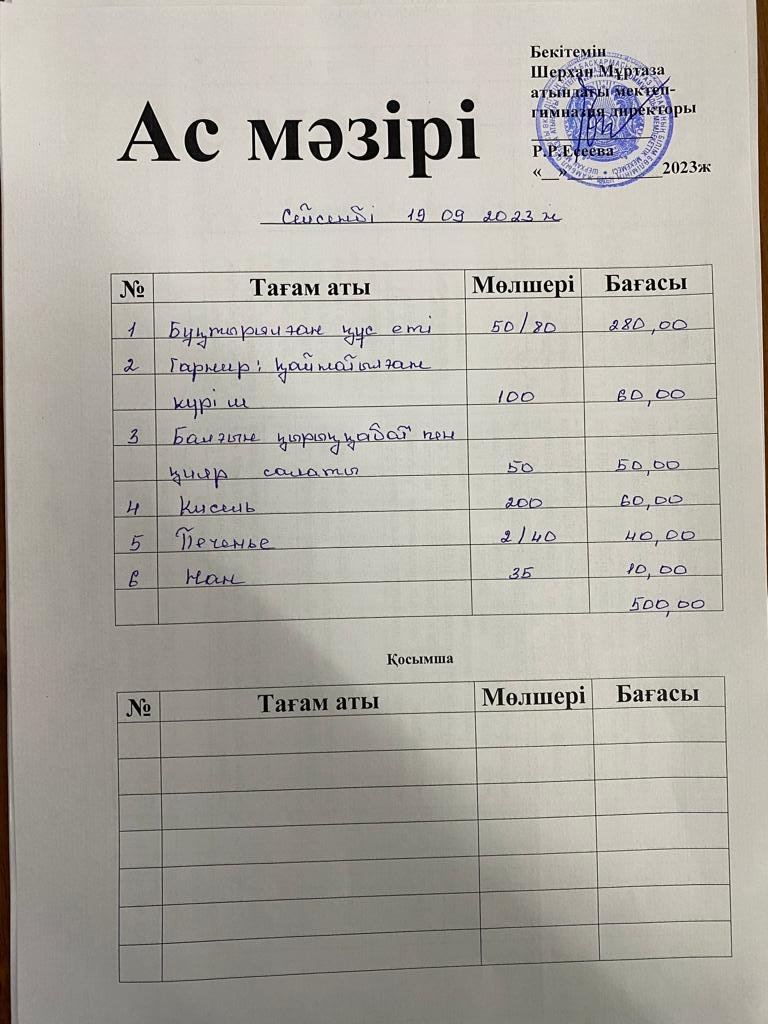 Бекітемін
Шерхан Мұртаза
атындағы мектеп-
гимназия директоры
Р.Р.Есеева
«__»____________2023ж
Ас мәзірі
Сейсенбі 19 09 2023 ж
№ Тағам аты Мөлшері Бағасы
1 Бұқтырылған құс еті 50/80 280,00
2 Гарнир: қайнатылған
күріш 100 60,00
3 Балғын қырыққабат пен
қияр салаты 50 50,00
4 Кисель 200 60,00
5 Печенье 2/40 40,00
6 Нан 35 10,00
500,00
Қосымша
№ Тағам аты Мөлшері Бағасы